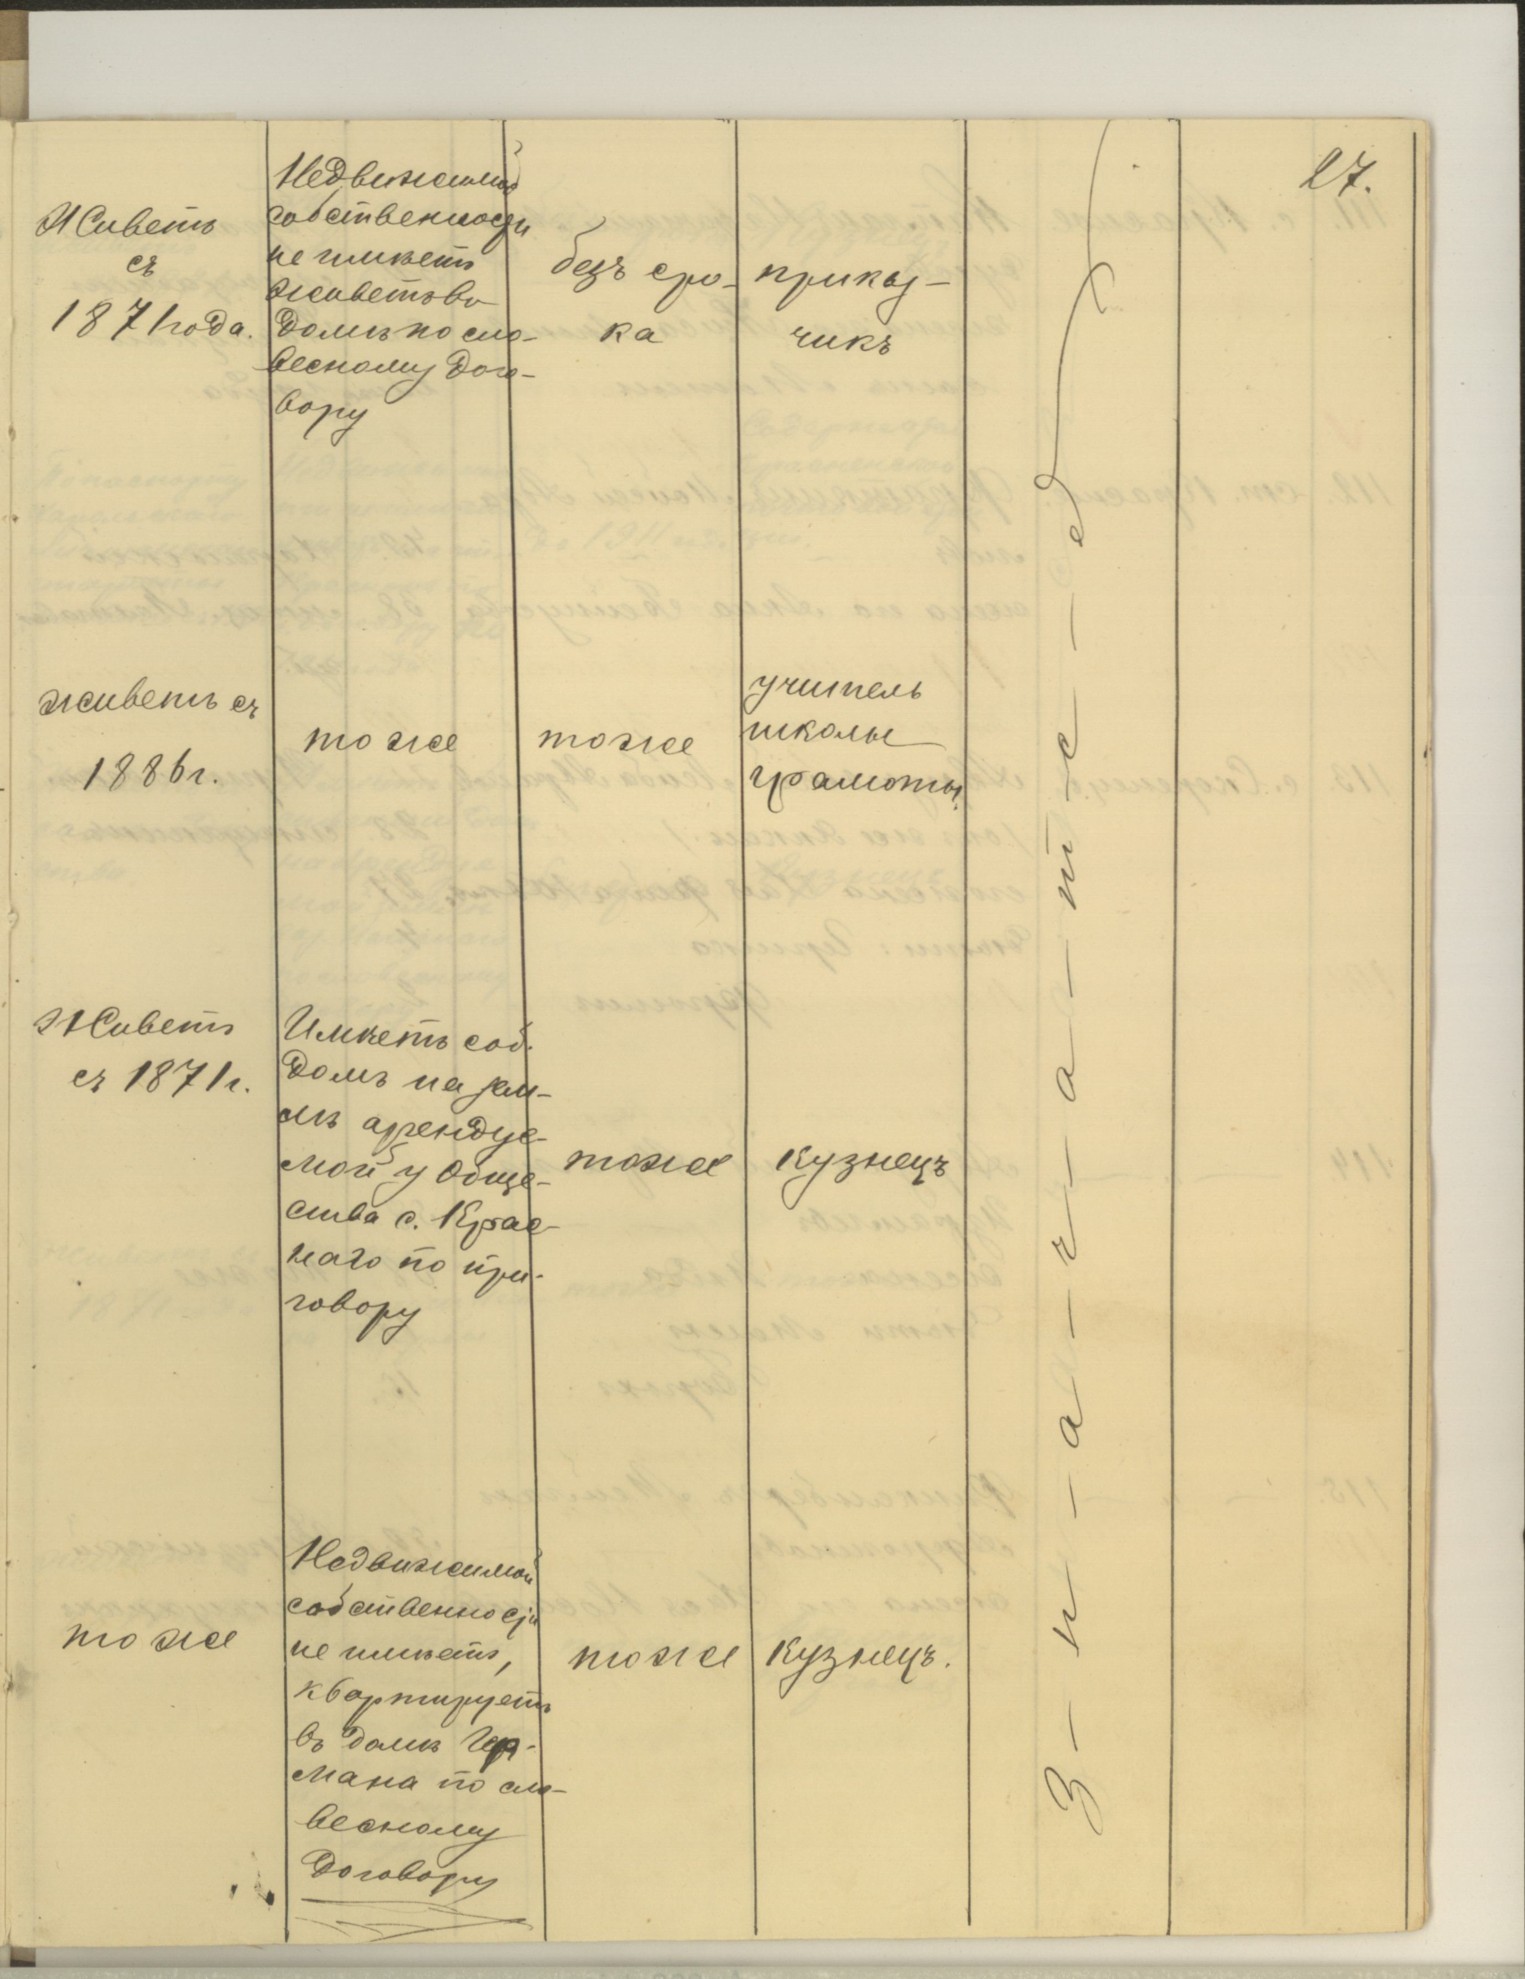 27.
Живетъ
съ
1871 года.
Недвижимой
собственности
не имѣетъ
живетъ въ
домѣ по сло-
весному дого-
вору
безъ сро-
ка
приказ-
чикъ
живетъ съ
1886 г.
тоже
тоже
учитель
школы
грамоты.
Живетъ
съ 1871 г.
Имѣетъ соб.
домъ на зем-
лѣ арендуе-
мой у Обще-
ства с. Крас-
наго по при-
говору
тоже
кузнецъ
тоже
Недвижимой
собственности
не имѣетъ,
квартируетъ
въ домѣ
мана по сло-
весному
договору
тоже
кузнецъ.
З-н-а-ч-а-т-с-